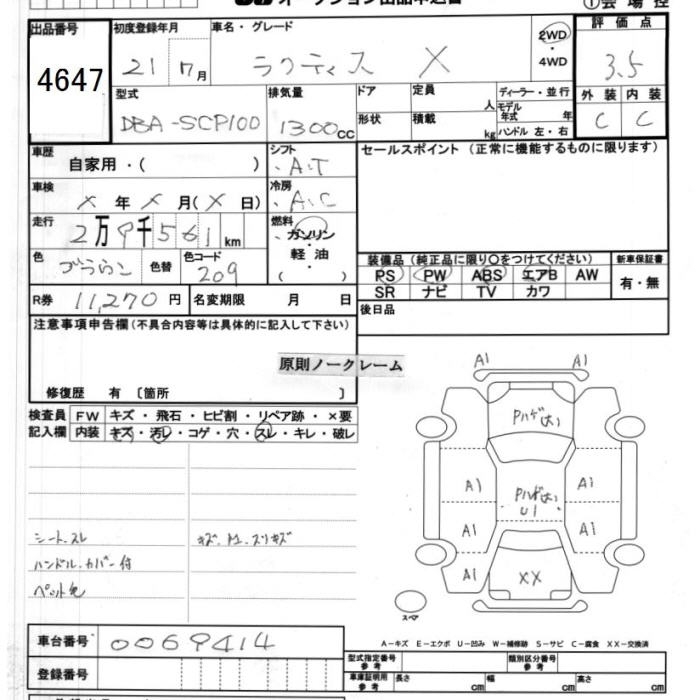 オークション出品申込書
①会場控
出品番号
4647
初度登録年月
21 7月
車名・グレード
ラクティス X
2WD
・
4WD
評価点
3.5
型式
DBA-SCP100
排気量
1300cc
ドア
形状
定員
人
積載
kg
ディーラー・並行
モデル年式 年
ハンドル 左・右
外装 内装
C C
車歴
自家用・( )
シフト
A.T
セールスポイント (正常に機能するものに限ります)
車検
X年X月(X日)
冷房
A.C
走行
2万9千561km
燃料
ガソリン・
軽油・
( )
色
色替
色コード
209
装備品 (純正品に限り〇をつけてください)
新車保証書
PS PW ABS エアB AW
SR ナビ TV カワ
有・無
R券 11,270円
名変期限 月 日
後日品
注意事項申告欄(不具合内容等は具体的に記入して下さい)
原則ノークレーム
修復歴 有 〔箇所 〕
検査員
記入欄
FW キズ・飛石・ヒビ割・リペア跡・×要
内装 キズ・汚レ・コゲ・穴・スレ・キレ・破レ
シートスレ
ハンドルカバー付
キズ
A1 A1
Pハゲ
A1 A1
Pハゲ
U1
A1 A1
A1 XX
スペア
A-キズ E-エクボ U-凹み W-補修跡 S-サビ C-腐食 XX-交換済
車台番号 0069414
登録番号
型式指定番号
参考
類別区分番号
参考
車庫証明用
参考
長さ cm
幅 cm
高さ cm